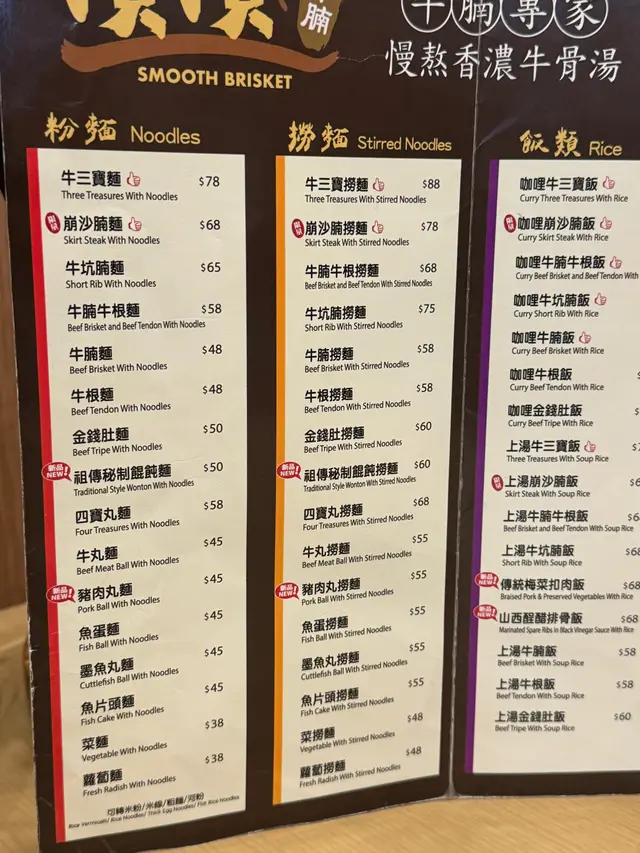 腩
SMOOTH BRISKET
牛腩專家
慢熬香濃牛骨湯
粉麵 Noodles
牛三寶麵 $78
Three Treasures With Noodles
限量 崩沙腩麵 $68
Skirt Steak With Noodles
牛坑腩麵 $65
Short Rib With Noodles
牛腩牛根麵 $58
Beef Brisket and Beef Tendon With Noodles
牛腩麵 $48
Beef Brisket With Noodles
牛根麵 $48
Beef Tendon With Noodles
金錢肚麵 $50
Beef Tripe With Noodles
新品 NEW! 祖傳秘制餛飩麵 $50
Traditional Style Wonton With Noodles
四寶丸麵 $58
Four Treasures With Noodles
牛丸麵 $45
Beef Meat Ball With Noodles
新品 NEW! 豬肉丸麵 $45
Pork Ball With Noodles
魚蛋麵 $45
Fish Ball With Noodles
墨魚丸麵 $45
Cuttlefish Ball With Noodles
魚片頭麵 $45
Fish Cake With Noodles
菜麵 $38
Vegetable With Noodles
蘿蔔麵 $38
Fresh Radish With Noodles
可轉米粉/米線/粗麵/河粉
Rice Vermicelli/ Rice Noodles/ Thick Egg Noodles/ Flat Rice Noodles
撈麵 Stirred Noodles
牛三寶撈麵 $88
Three Treasures With Stirred Noodles
限量 崩沙腩撈麵 $78
Skirt Steak With Stirred Noodles
牛腩牛根撈麵 $68
Beef Brisket and Beef Tendon With Stirred Noodles
牛坑腩撈麵 $75
Short Rib With Stirred Noodles
牛腩撈麵 $58
Beef Brisket With Stirred Noodles
牛根撈麵 $58
Beef Tendon With Stirred Noodles
金錢肚撈麵 $60
Beef Tripe With Stirred Noodles
新品 NEW! 祖傳秘制餛飩撈麵 $60
Traditional Style Wonton With Stirred Noodles
四寶丸撈麵 $68
Four Treasures With Stirred Noodles
牛丸撈麵 $55
Beef Meat Ball With Stirred Noodles
新品 NEW! 豬肉丸撈麵 $55
Pork Ball With Stirred Noodles
魚蛋撈麵 $55
Fish Ball With Stirred Noodles
墨魚丸撈麵 $55
Cuttlefish Ball With Stirred Noodles
魚片頭撈麵 $55
Fish Cake With Stirred Noodles
菜撈麵 $48
Vegetable With Stirred Noodles
蘿蔔撈麵 $48
Fresh Radish With Stirred Noodles
飯類 Rice
咖哩牛三寶飯
Curry Three Treasures With Rice
限量 咖哩崩沙腩飯
Curry Skirt Steak With Rice
咖哩牛腩牛根飯
Curry Beef Brisket and Beef Tendon With
咖哩牛坑腩飯
Curry Short Rib With Rice
咖哩牛腩飯
Curry Beef Brisket With Rice
咖哩牛根飯
Curry Beef Tendon With Rice
咖哩金錢肚飯
Curry Beef Tripe With Rice
上湯牛三寶飯
Three Treasures With Soup Rice
限量 上湯崩沙腩飯
Skirt Steak With Soup Rice
上湯牛腩牛根飯
Beef Brisket and Beef Tendon With Soup Rice
上湯牛坑腩飯
Short Rib With Soup Rice
新品 NEW! 傳統梅菜扣肉飯 $68
Braised Pork & Preserved Vegetables With Rice
新品 NEW! 山西醒醋排骨飯 $68
Marinated Spare Ribs in Black Vinegar Sauce With Rice
上湯牛腩飯 $58
Beef Brisket With Soup Rice
上湯牛根飯 $58
Beef Tendon With Soup Rice
上湯金錢肚飯 $60
Beef Tripe With Soup Rice